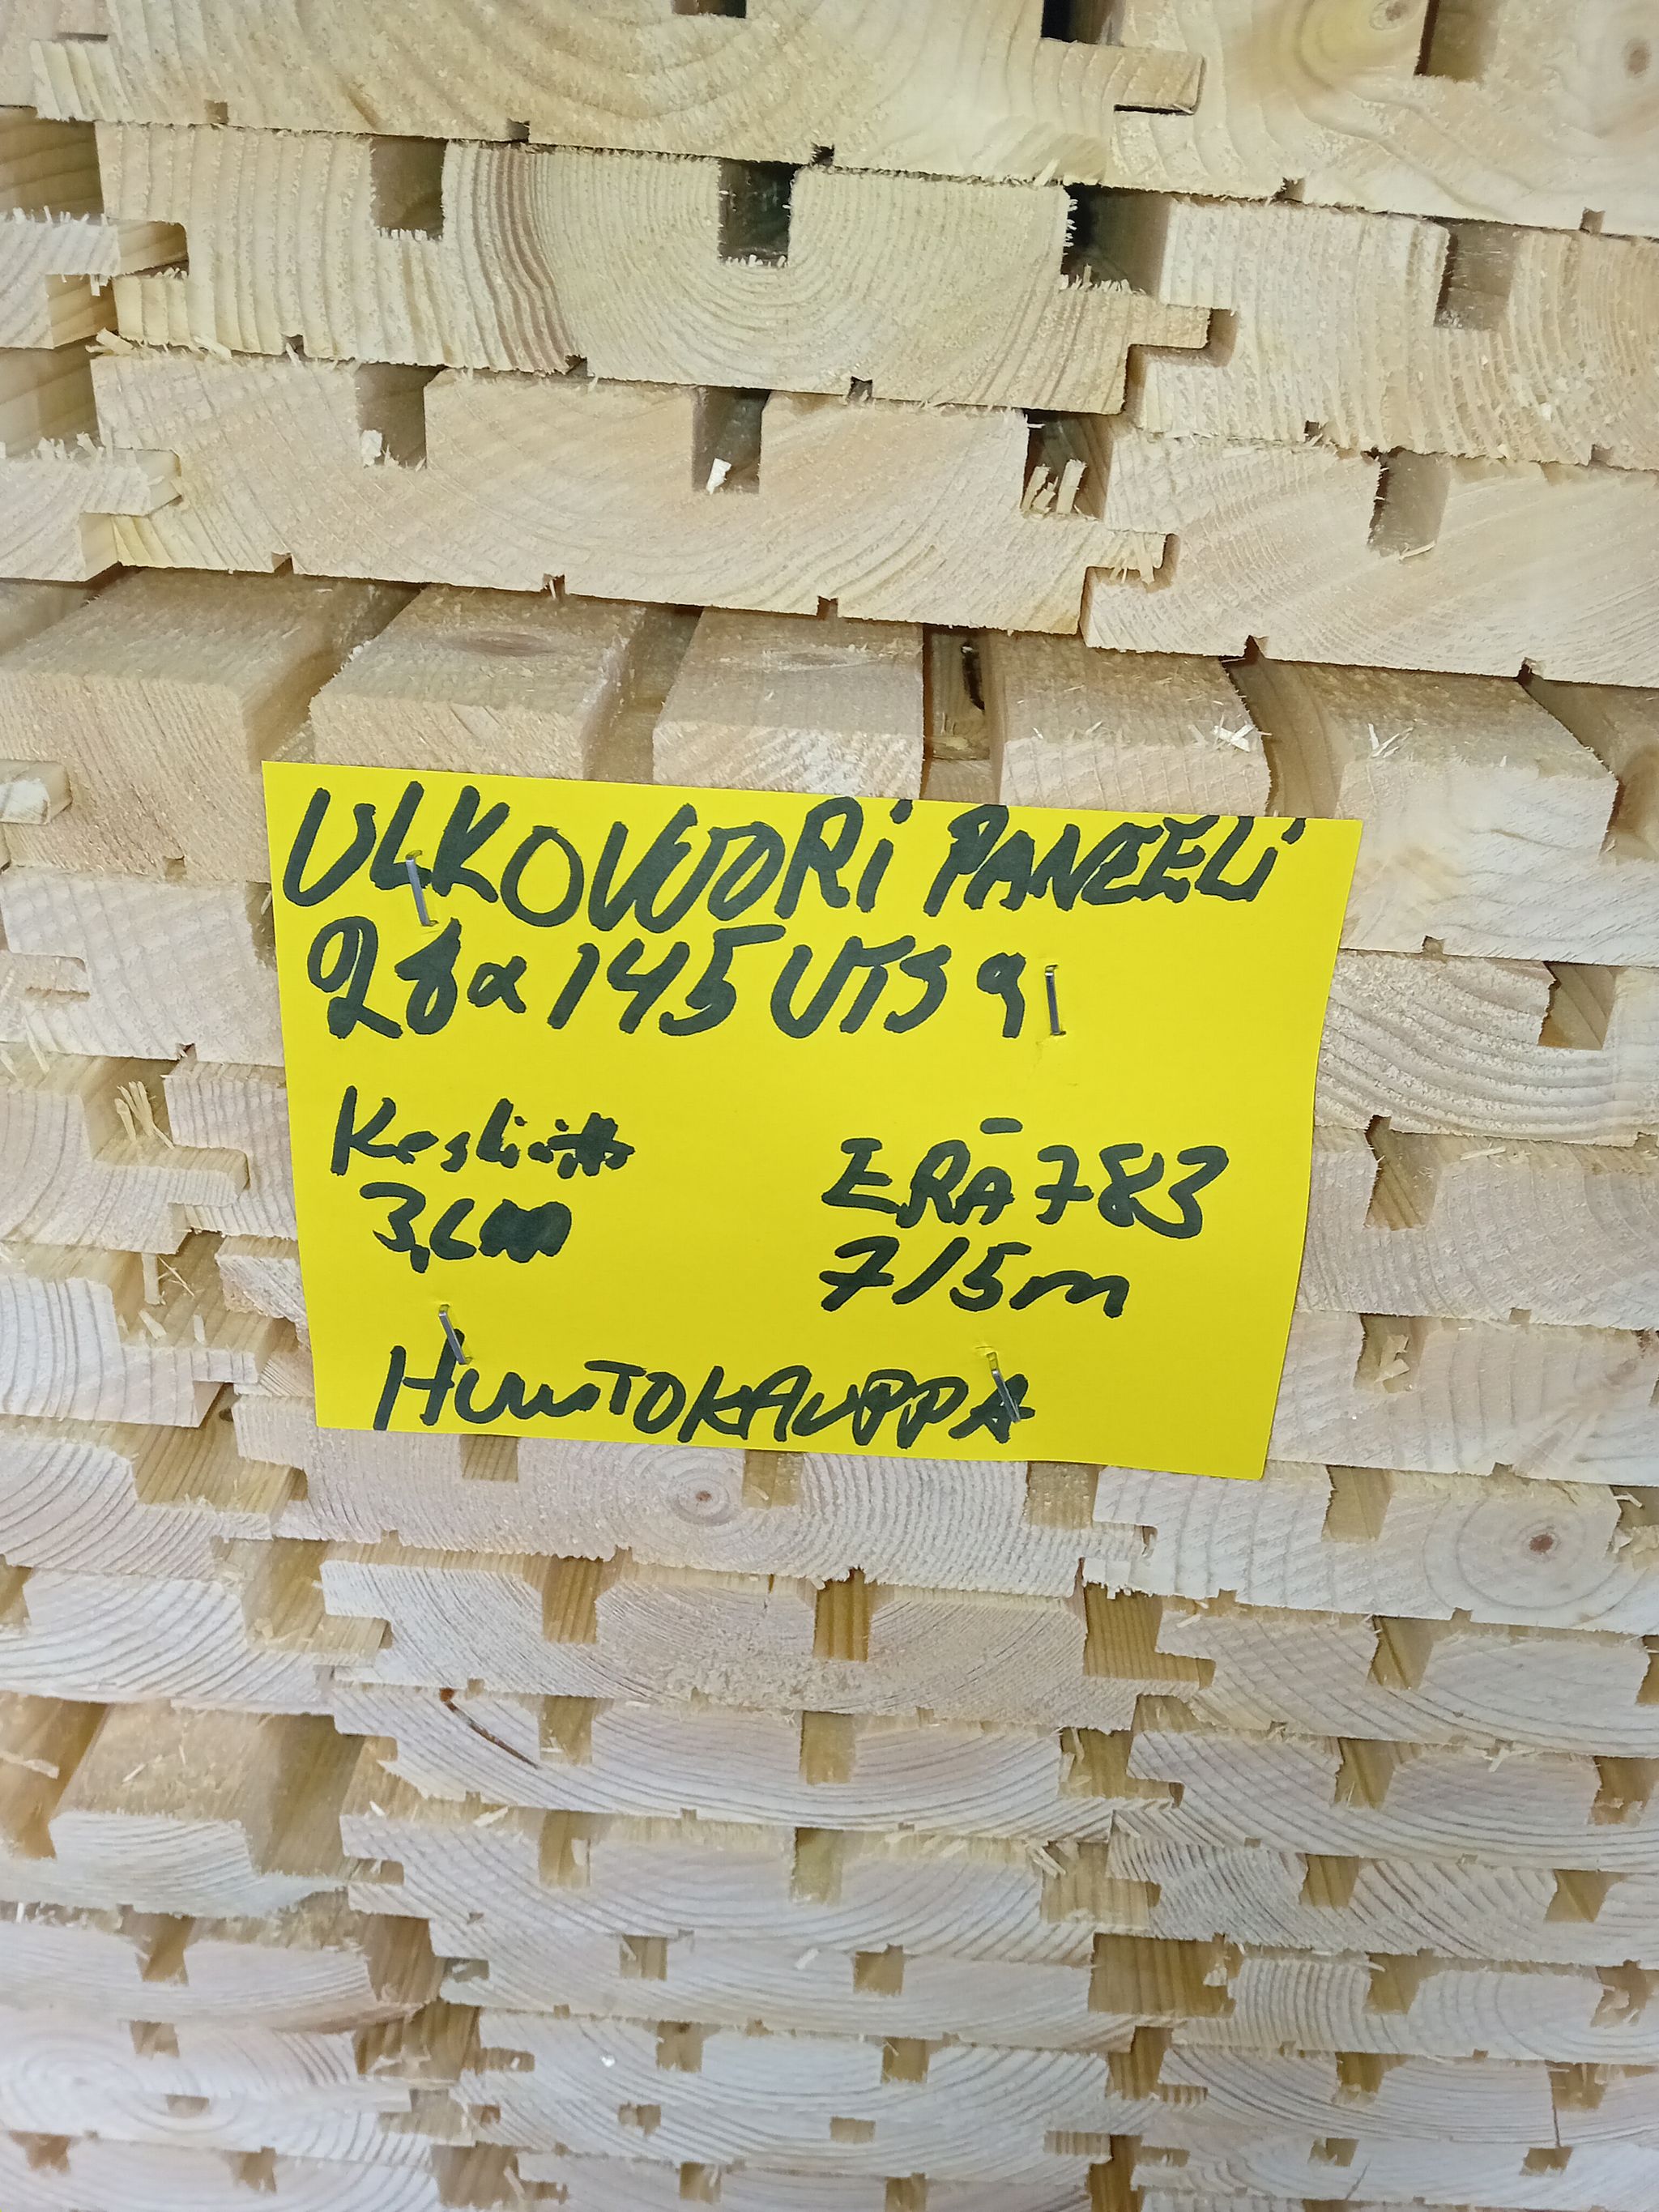 ULKOVUORI PANEELI
28x145 UTS 9
Keskimitta
3,6m
ERÄ 783
715m
HUUTOKAUPPA